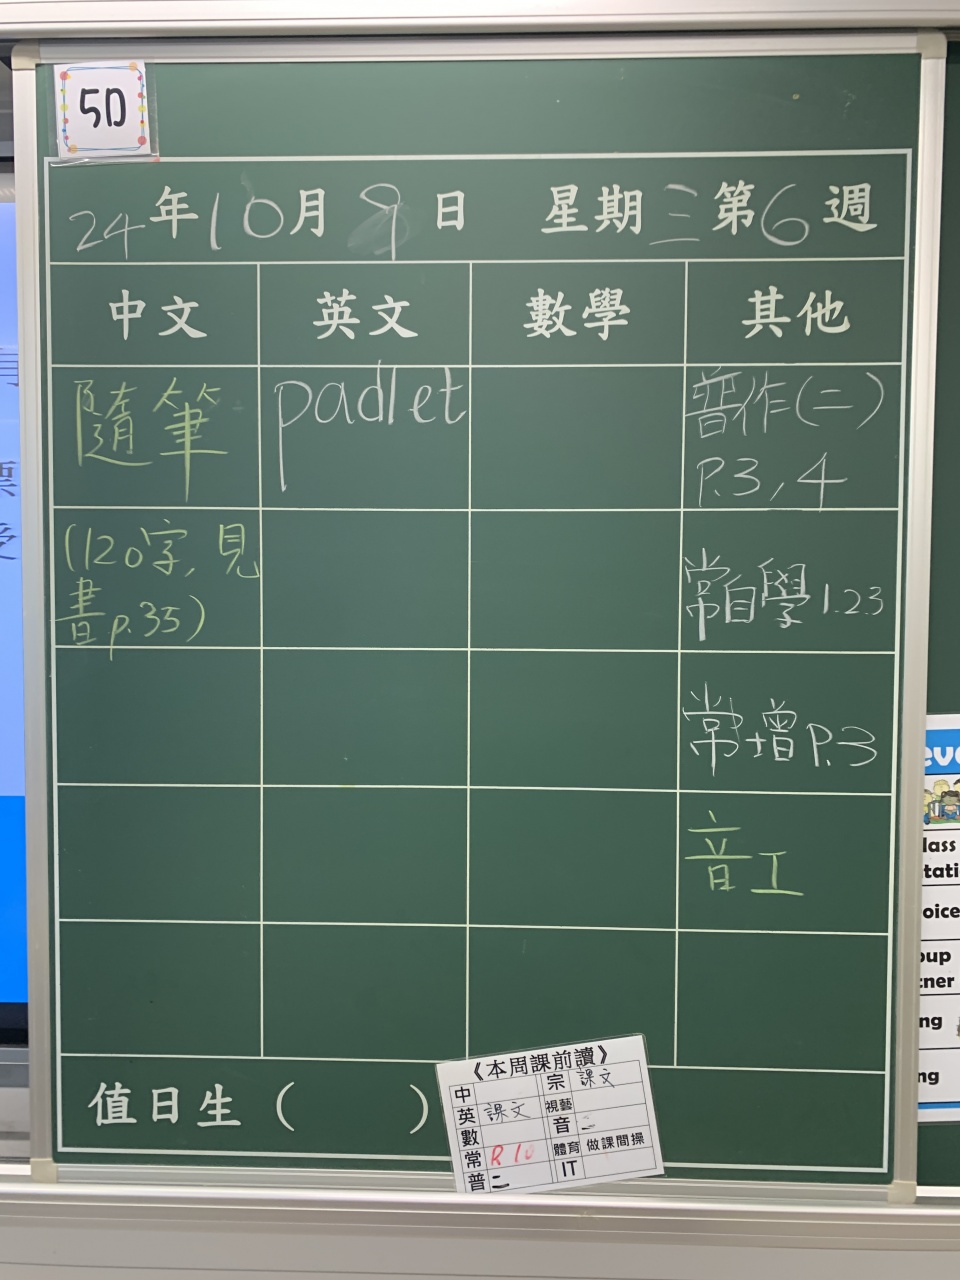 5D
24年10月9日 星期三第6週
中文 英文 數學 其他
隨筆 padlet 普作(二)
P.3,4
(120字,見
書p.35)
常自學1.2.3
常增P.3
音工
值日生( )
《本周課前讀》
中 宗 課文
英 課文 視藝
數 音 二
常 R 10 體育 做課間操
普 二 IT
eve
lass
tati
oice
oup
tner
ng
ng